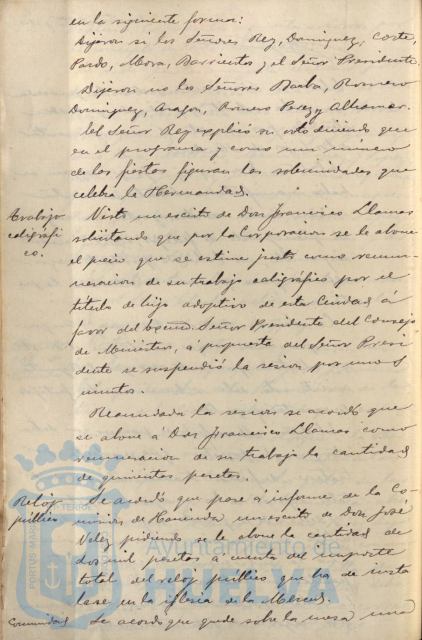 en la siguiente forma:
Dijeron si los Señores Rey, Dominguez, Corte,
Pardo, Mora, Barrientos y el Señor Presidente
Dijeron no los Señores Baeba, Romero
Dominguez, Aragon, Romero Perez y Alhamar.
El Señor Rey explicó su voto diciendo que
en el programa y como un número
de las fiestas figuran las solemnidades que
celebra la Hermandad.
trabajo
caligráfi
co.
Visto un escrito de Don Francisco Llamas
solicitando que por la Corporacion se le abone
el precio que se estime justo como remu-
neracion de su trabajo caligráfico por el
titulo de hijo adoptivo de esta Ciudad á
favor del Excmo. Señor Presidente del Consejo
de Ministros, á propuesta del Señor Presi
dente se suspendió la sesion por unos
minutos.
Reanudada la sesion se acordó que
se abone á Don Francisco Llamas como
remuneracion de su trabajo la cantidad
de quinientas pesetas.
Reloj
público
Se acordó que pase á informe de la Co-
mision de Hacienda un escrito de Don José
Velez pidiendo se le abone la cantidad de
dos mil pesetas á cuenta del importe
total del reloj público que ha de insta
larse en la iglesia de la Merced.
Comunidad
Se acordó que quede sobre la mesa una
Ayuntamiento de
HUELVA